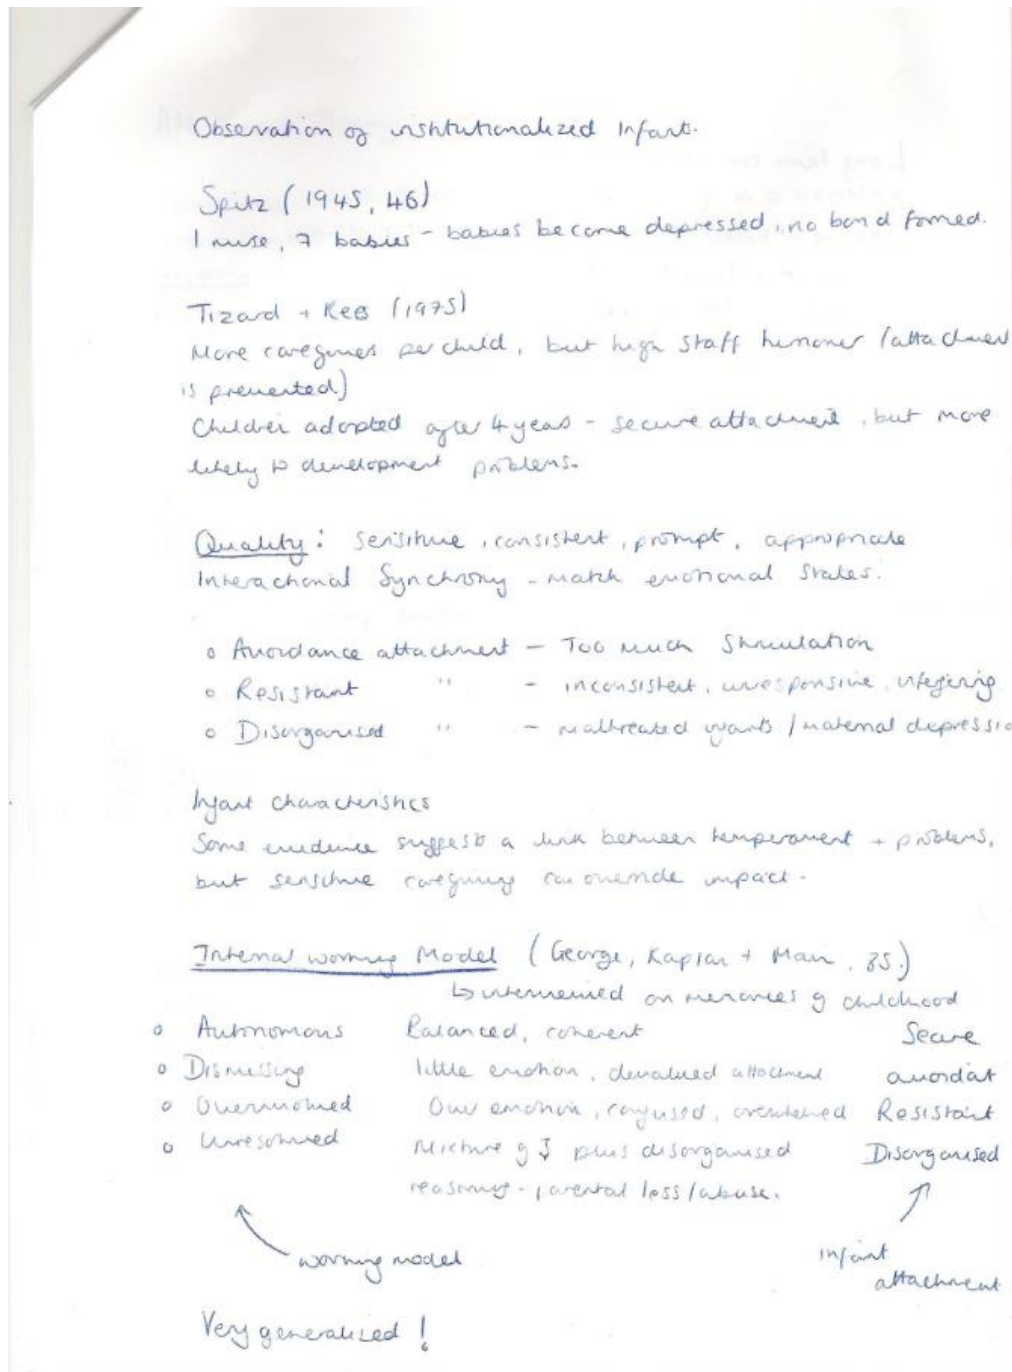 Observation of institutionalized Infants.
Spitz (1945, 46)
1 nurse, 7 babies - babies become depressed, no bond formed.
Tizard + Rees (1975)
More caregivers per child, but high staff turnover (attachment
is prevented)
Children adopted after 4 years - secure attachment, but more
likely to development problems.
Quality: sensitive, consistent, prompt, appropriate
Interactional Synchrony - match emotional states.
o Avoidance attachment - Too much Stimulation
o Resistant " - inconsistent, unresponsive, interfering
o Disorganised " - maltreated infants / maternal depressio
Infant characteristics
Some evidence suggests a link between temperament + problems,
but sensitive caregiving can override impact.
Internal working Model (George, Kaplan + Main, 85.)
↳ interviewed on memories of childhood
o Autonomous Balanced, coherent Secure
o Dismissing little emotion, devalued attachment avoidat
o Overinvolved Over emotion, confused, Resistant
o Unresolved Mixture of ↕ plus disorganised Disorganised
reasoning - parental loss/abuse.
working model
infant
attachment
Very generalized!